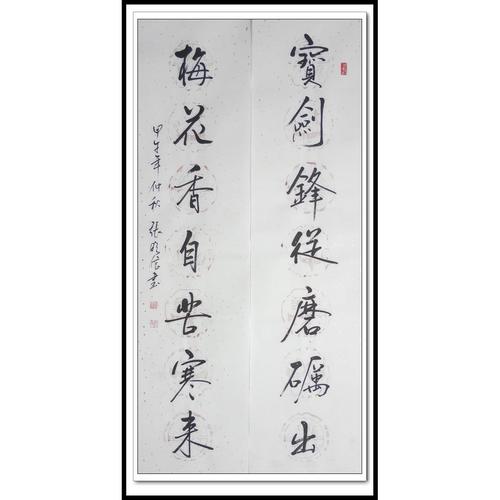 寶劍鋒從磨礪出
梅花香自苦寒来
甲午年仲秋 張
書